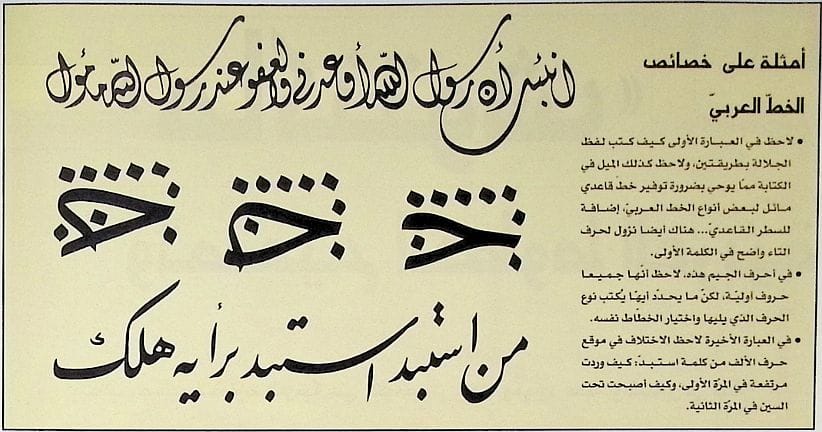 أمثلة على خصائص
الخطّ العربيّ
• لاحظ في العبارة الأولى كيف كتب لفظ
الجلالة بطريقتين، ولاحظ كذلك الميل في
الكتابة ممّا يوحي بضرورة توفير خطّ قاعدي
مائل لبعض أنواع الخط العربيّ، إضافة
للسطر القاعديّ... هناك أيضا نزول لحرف
التاء واضح في الكلمة الأولى.
• في أحرف الجيم هذه، لاحظ أنّها جميعا
حروف أوليّة، لكنّ ما يحدّد أيها يُكتب نوع
الحرف الذي يليها واختيار الخطّاط نفسه.
• في العبارة الأخيرة لاحظ الاختلاف في موقع
حرف الألف من كلمة استبدّ: كيف وردت
مرتفعة في المرّة الأولى، وكيف أصبحت تحت
السين في المرّة الثانية.
أنبئت أن رسول الله أوعدني والعفو عند رسول الله مأمول
من استبد استبد برأيه هلك